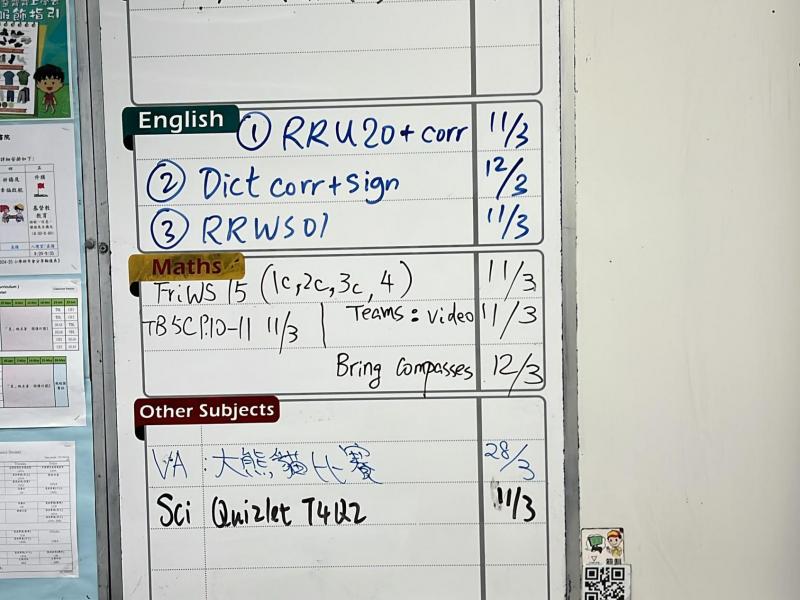 服飾指引
English ① RRU20+corr 11/3
② Dict corr+sign 12/3
③ RRWS01 11/3
Maths
FriWS 15 (1c,2c,3c,4) 11/3
TB5CP.10-11 11/3 | Teams: video 11/3
Bring Compasses 12/3
Other Subjects
VA : 大熊貓比賽 28/3
Sci Quizlet T4U2 11/3